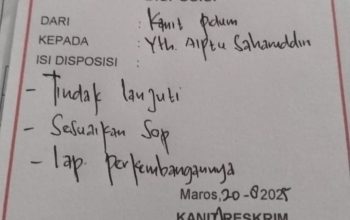 DARI : Kanit Pdum
KEPADA : Yth. Aiptu Saharuddin
ISI DISPOSISI :
- Tindak lanjuti
- Sesuaikan Sop
- Lap. perkembangannya
Maros, 20-8 2025
KANIT RESKRIM